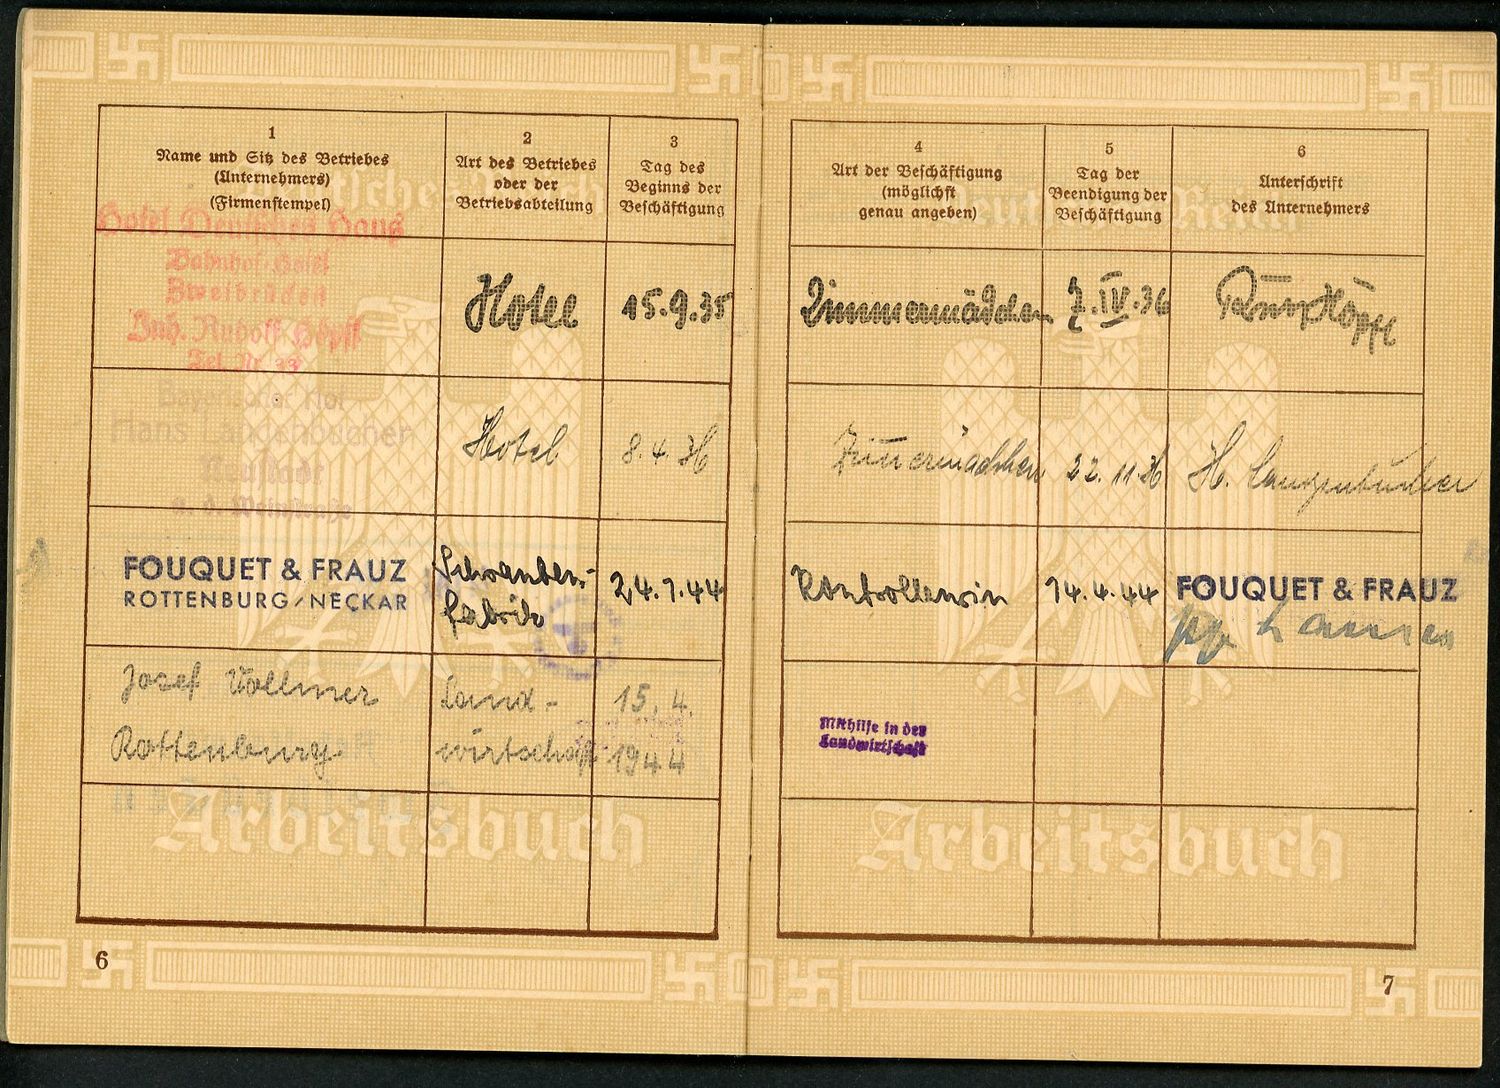 1
Name und Sitz des Betriebes
(Unternehmers)
(Firmenstempel)
2
Art des Betriebes
oder der
Betriebsabteilung
3
Tag des
Beginns der
Beschäftigung
4
Art der Beschäftigung
(möglichst
genau angeben)
5
Tag der
Beendigung der
Beschäftigung
6
Unterschrift
des Unternehmers
Hotel Deutsches Haus
Bahnhof-Hotel
Zweibrücken
Inh. Rudolf Höpfl
Tel. Nr. 33
Hotel
15.9.35
Zimmermädchen
7.IV.36
Höpfl
Bayerischer Hof
Hans Langenbucher
Neustadt
a. d. Weinstraße
Hotel
8.4.36
Zimmermädchen
22.11.36
H. Langenbucher
FOUQUET & FRAUZ
ROTTENBURG/NECKAR
fabrik
24.1.44
Kontrolleurin
14.4.44
FOUQUET & FRAUZ
Josef Vollmer
Rottenburg
Land-
wirtschaft
15.4.
1944
Mithilfe in der
Landwirtschaft
Arbeitsbuch
Arbeitsbuch
6
7